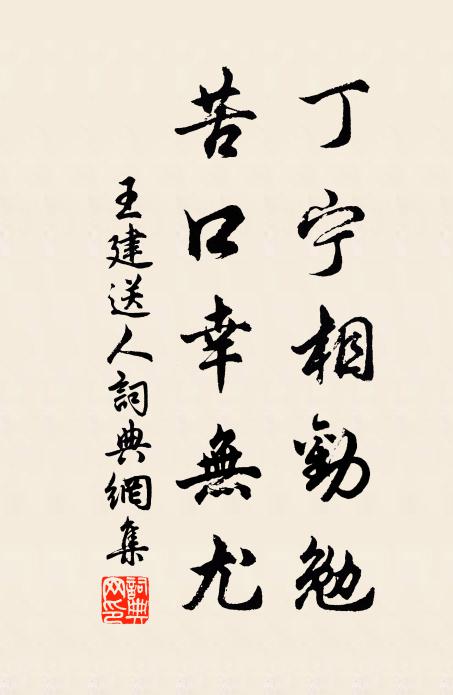 丁宁相勸勉
苦口幸無尤
王建送人詞典網集
詞典网印